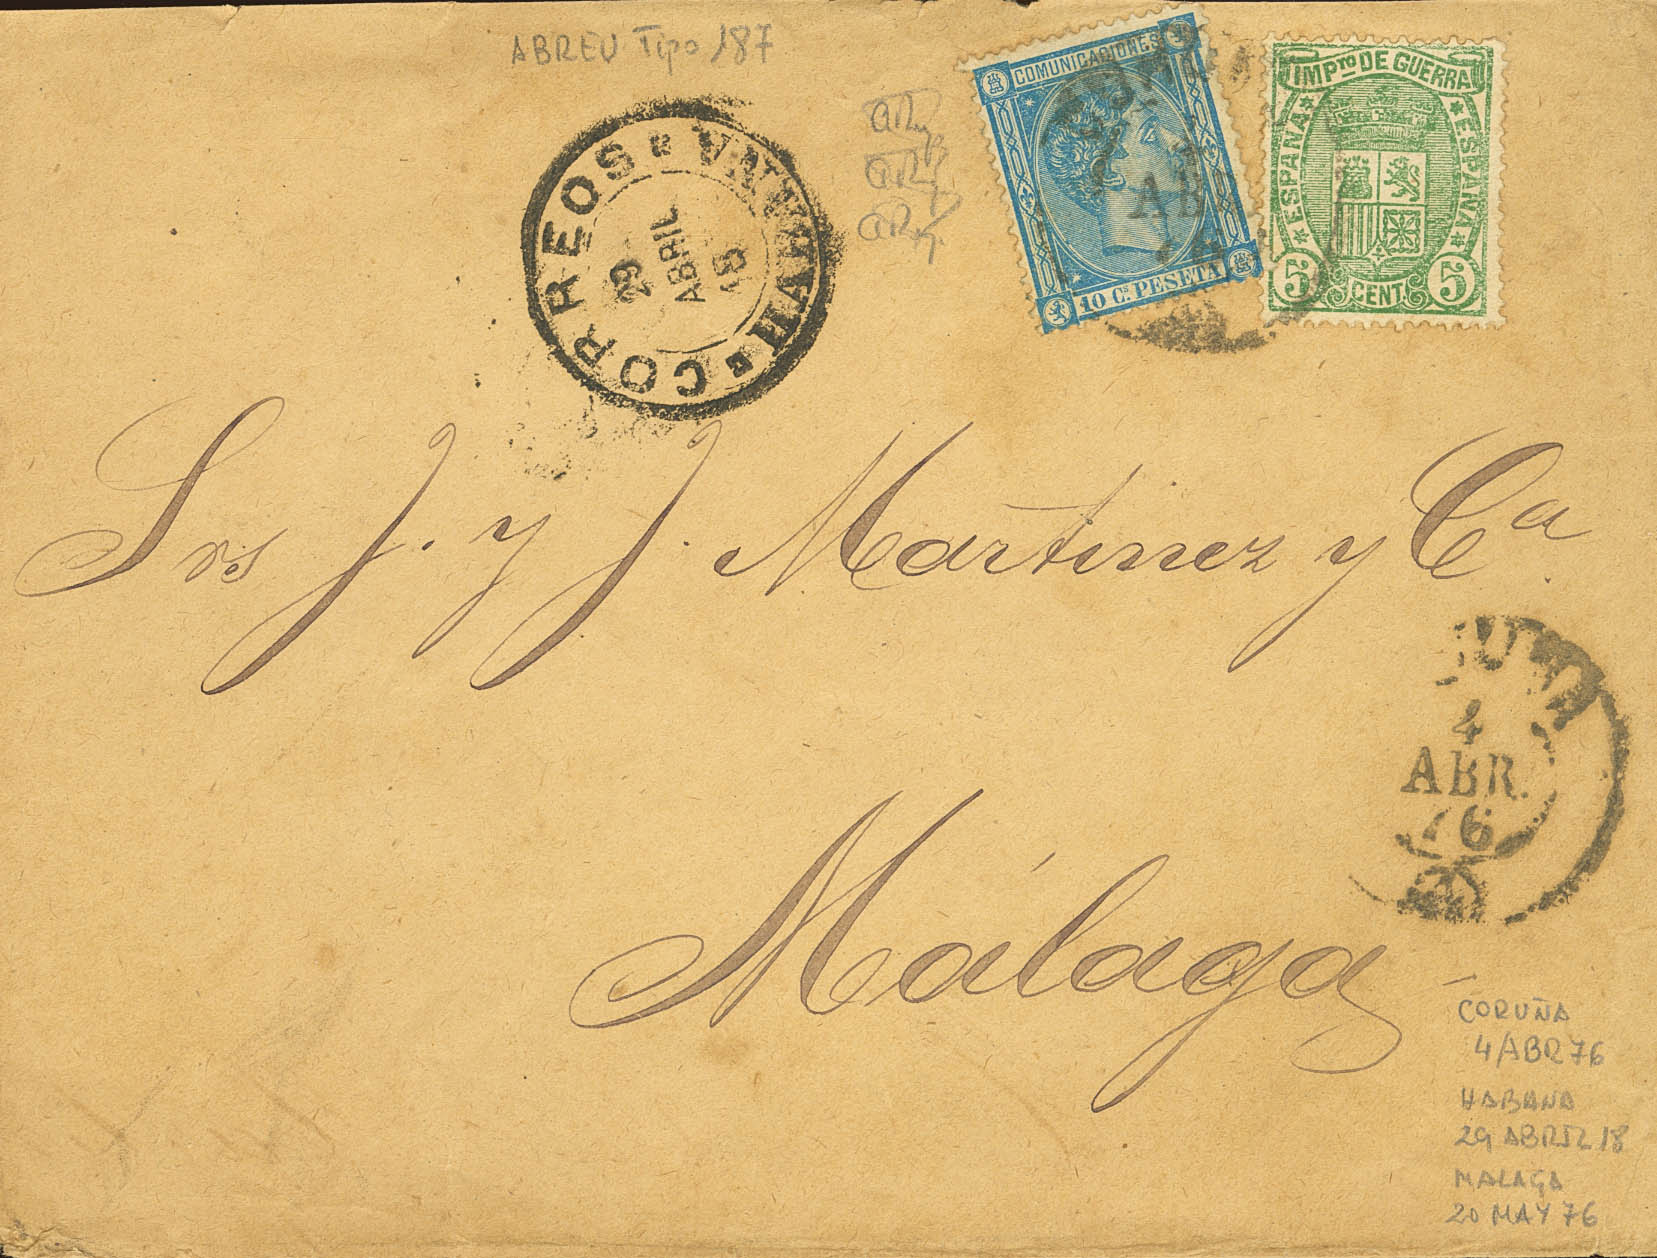 ABREU Tipo 187
COMUNICACIONES
10 Cs PESETA
ABR
IMPto DE GUERRA
ESPAÑA
ESPAÑA
5 CENT. 5
CORREOS
HABANA
29
ABRIL
18
Srs J. y J. Martinez y Ca.
Málaga
4
ABR.
76
CORUÑA
4/ABR 76
HABANA
29 ABRIL 18
MALAGA
20 MAY 76